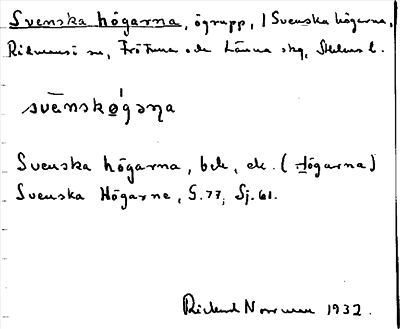 Svenska högarna, ögrupp, i Svenska högarna,
Ridmansö sn, Frötuna och Länna skg, Sthlms l.
svènskǿgaɳa
Svenska högarna, bek, ek. (Högarna)
Svenska Högarne, G. 77, Sj. 61.
Rickard Norrman 1932.